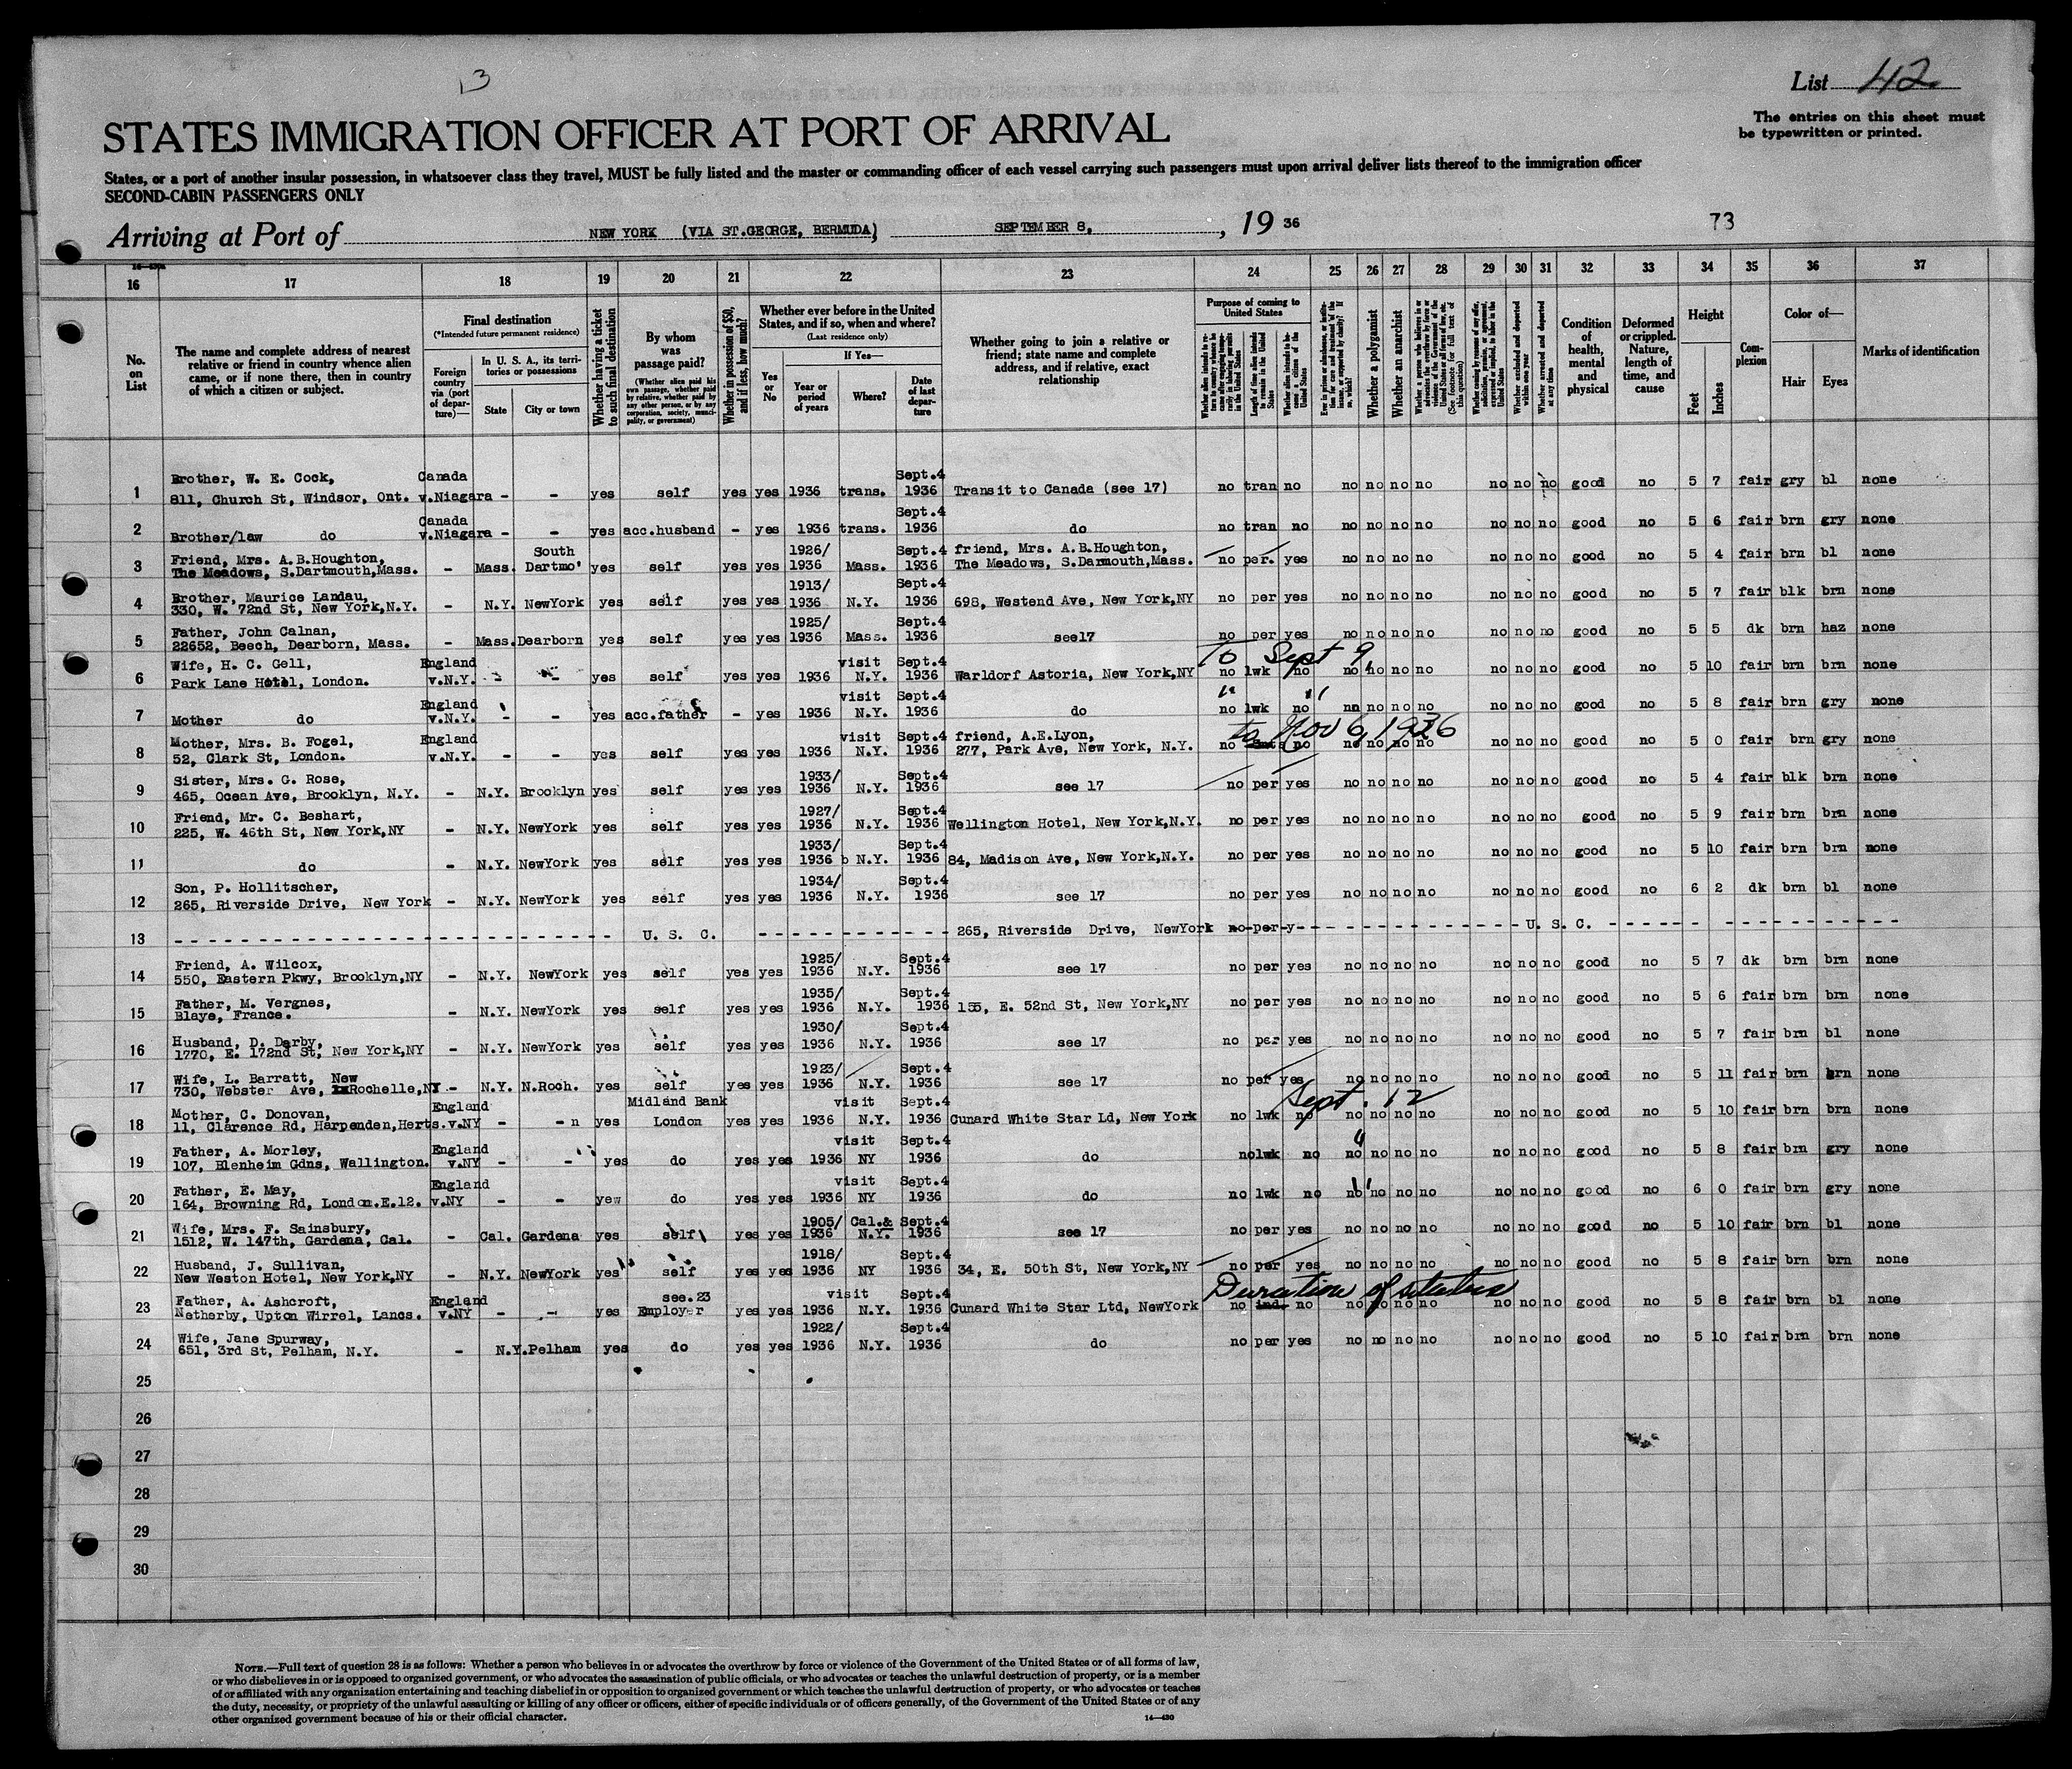 13
List 42
The entries on this sheet must
be typewritten or printed.
STATES IMMIGRATION OFFICER AT PORT OF ARRIVAL
States, or a port of another insular possession, in whatsoever class they travel, MUST be fully listed and the master or commanding officer of each vessel carrying such passengers must upon arrival deliver lists thereof to the immigration officer
SECOND-CABIN PASSENGERS ONLY
Arriving at Port of NEW YORK (VIA ST.GEORGE, BERMUDA) SEPTEMBER 8, , 19 36
73
16 17 18 19 20 21 22 23 24 25 26 27 28 29 30 31 32 33 34 35 36 37
No. on List
The name and complete address of nearest relative or friend in country whence alien came, or if none there, then in country of which a citizen or subject.
Final destination
(*Intended future permanent residence)
Foreign country via (port of departure)—
In U. S. A., its territories or possessions
State City or town
Whether having a ticket to such final destination
By whom was passage paid?
(Whether alien paid his own passage, whether paid by relative, whether paid by any other person, or by any corporation, society, municipality, or government)
Whether in possession of $50, and if less, how much?
Whether ever before in the United States, and if so, when and where?
(Last residence only)
Yes or No
If Yes—
Year or period of years Where? Date of last departure
Whether going to join a relative or friend; state name and complete address, and if relative, exact relationship
Purpose of coming to United States
Length of time alien intends to remain in the United States
Whether alien intends to become a citizen of the United States
Whether a polygamist
Whether an anarchist
Whether excluded and deported within one year
Whether arrested and deported at any time
Condition of health, mental and physical
Deformed or crippled. Nature, length of time, and cause
Height
Feet Inches
Complexion
Color of—
Hair Eyes
Marks of identification
1 Brother, W. E. Cock, Canada Sept.4
811, Church St, Windsor, Ont. v.Niagara - - yes self yes yes 1936 trans. 1936 Transit to Canada (see 17) no tran no no no no no no no no good no 5 7 fair gry bl none
2 Canada Sept.4
Brother/law do v.Niagara - - yes acc.husband - yes 1936 trans. 1936 do no tran no no no no no no no no good no 5 6 fair brn gry none
3 Friend, Mrs. A.B.Houghton, South 1926/ Sept.4 friend, Mrs. A.B.Houghton,
The Meadows, S.Dartmouth,Mass. - Mass. Dartmo' yes self yes yes 1936 Mass. 1936 The Meadows, S.Darmouth,Mass. no per. yes no no no no no no no good no 5 4 fair brn bl none
4 Brother, Maurice Landau, 1913/ Sept.4
330, W. 72nd St, New York,N.Y. - N.Y. NewYork yes self yes yes 1936 N.Y. 1936 698, Westend Ave, New York,NY no per yes no no no no no no no good no 5 7 fair blk brn none
5 Father, John Calnan, 1925/ Sept.4
22652, Beech, Dearborn, Mass. - Mass. Dearborn yes self yes yes 1936 Mass. 1936 see17 no per yes no no no no no no no good no 5 5 dk brn haz none
To Sept 9,
6 Wife, H. C. Gell, England visit Sept.4
Park Lane Hotel, London. v.N.Y. - - yes self yes yes 1936 N.Y. 1936 Warldorf Astoria, New York,NY no 1wk no no no no no no no no good no 5 10 fair brn brn none
" "
7 England visit Sept.4
Mother do v.N.Y. - - yes acc.father - yes 1936 N.Y. 1936 do no 1wk no nn no no no no no no good no 5 8 fair brn gry none
to Nov 6, 1936
8 Mother, Mrs. B. Fogel, England visit Sept.4 friend, A.E.Lyon,
52, Clark St, London. v.N.Y. - - yes self yes yes 1936 N.Y. 1936 277, Park Ave, New York, N.Y. no no no no no no no no no good no 5 0 fair brn gry none
9 Sister, Mrs. G. Rose, 1933/ Sept.4
465, Ocean Ave, Brooklyn, N.Y. - N.Y. Brooklyn yes self yes yes 1936 N.Y. 1936 see 17 no per yes no no no no no no no good no 5 4 fair blk brn none
10 Friend, Mr. C. Beshart, 1927/ Sept.4
225, W. 46th St, New York,NY - N.Y. NewYork yes self yes yes 1936 N.Y. 1936 Wellington Hotel, New York,N.Y. no per yes no no no no no no no good no 5 9 fair brn brn none
11 1933/ Sept.4
do - N.Y. NewYork yes self yes yes 1936 N.Y. 1936 84, Madison Ave, New York,N.Y. no per yes no no no no no no no good no 5 10 fair brn brn none
12 Son, P. Hollitscher, 1934/ Sept.4
265, Riverside Drive, New York - N.Y. NewYork yes self yes yes 1936 N.Y. 1936 see 17 no per yes no no no no no no no good no 6 2 dk brn bl none
13 - - - U. S. C. - - - 265, Riverside Drive, NewYork no-per-y- - - U. S. C. - - -
14 Friend, A. Wilcox, 1925/ Sept.4
550, Eastern Pkwy, Brooklyn,NY - N.Y. NewYork yes self yes yes 1936 N.Y. 1936 see 17 no per yes no no no no no no no good no 5 7 dk brn brn none
15 Father, M. Vergnes, 1935/ Sept.4
Blaye, France. - N.Y. NewYork yes self yes yes 1936 N.Y. 1936 155, E. 52nd St, New York,NY no per yes no no no no no no no good no 5 6 fair brn brn none
16 Husband, D. Derby, 1930/ Sept.4
1770, E. 172nd St, New York,NY - N.Y. NewYork yes self yes yes 1936 N.Y. 1936 see 17 no per yes no no no no no no no good no 5 7 fair brn bl none
17 Wife, L. Barratt, New 1923/ Sept.4
730, Webster Ave, Rochelle,NY - N.Y. N.Roch. yes self yes yes 1936 N.Y. 1936 see 17 no per yes no no no no no no no good no 5 11 fair brn brn none
Sept. 12
18 Mother, C. Donovan, England Midland Bank visit Sept.4
11, Clarence Rd, Harpenden,Herts. v.NY - - n yes London yes yes 1936 N.Y. 1936 Cunard White Star Ld, New York no 1wk no no no no no no no no good no 5 10 fair brn brn none
"
19 Father, A. Morley, England visit Sept.4
107, Blenheim Gdns, Wallington. v.NY - - yes do yes yes 1936 NY 1936 do no1wk no no no no no no no no good no 5 8 fair brn gry none
"
20 Father, E. May, England visit Sept.4
164, Browning Rd, London.E.12. v.NY - - yew do yes yes 1936 NY 1936 do no 1wk no no no no no no no no good no 6 0 fair brn gry none
21 Wife, Mrs. F. Sainsbury, 1905/ Cal.& Sept.4
1512, W. 147th, Gardena, Cal. - Cal. Gardena yes self yes yes 1936 N.Y. 1936 see 17 no per yes no no no no no no no good no 5 10 fair brn bl none
22 Husband, J. Sullivan, 1918/ Sept.4
New Weston Hotel, New York,NY - N.Y. NewYork yes self yes yes 1936 NY 1936 34, E. 50th St, New York,NY no per yes no no no no no no no good no 5 8 fair brn brn none
Duration of status
23 Father, A. Ashcroft, England see.23 visit Sept.4
Netherby, Upton Wirrel, Lancs. v.NY - - yes Employer yes yes 1936 N.Y. 1936 Cunard White Star Ltd, NewYork no ind. no no no no no no no no good no 5 8 fair brn bl none
24 Wife, Jane Spurway, 1922/ Sept.4
651, 3rd St, Pelham, N.Y. - N.Y. Pelham yes do yes yes 1936 N.Y. 1936 do no per yes no no no no no no no good no 5 10 fair brn brn none
25
26
27
28
29
30
NOTE.—Full text of question 28 is as follows: Whether a person who believes in or advocates the overthrow by force or violence of the Government of the United States or of all forms of law,
or who disbelieves in or is opposed to organized government, or who advocates the assassination of public officials, or who advocates or teaches the unlawful destruction of property, or is a member
of or affiliated with any organization entertaining and teaching disbelief in or opposition to organized government or which teaches the unlawful destruction of property, or who advocates or teaches
the duty, necessity, or propriety of the unlawful assaulting or killing of any officer or officers, either of specific individuals or of officers generally, of the Government of the United States or of any
other organized government because of his or their official character.
14—430